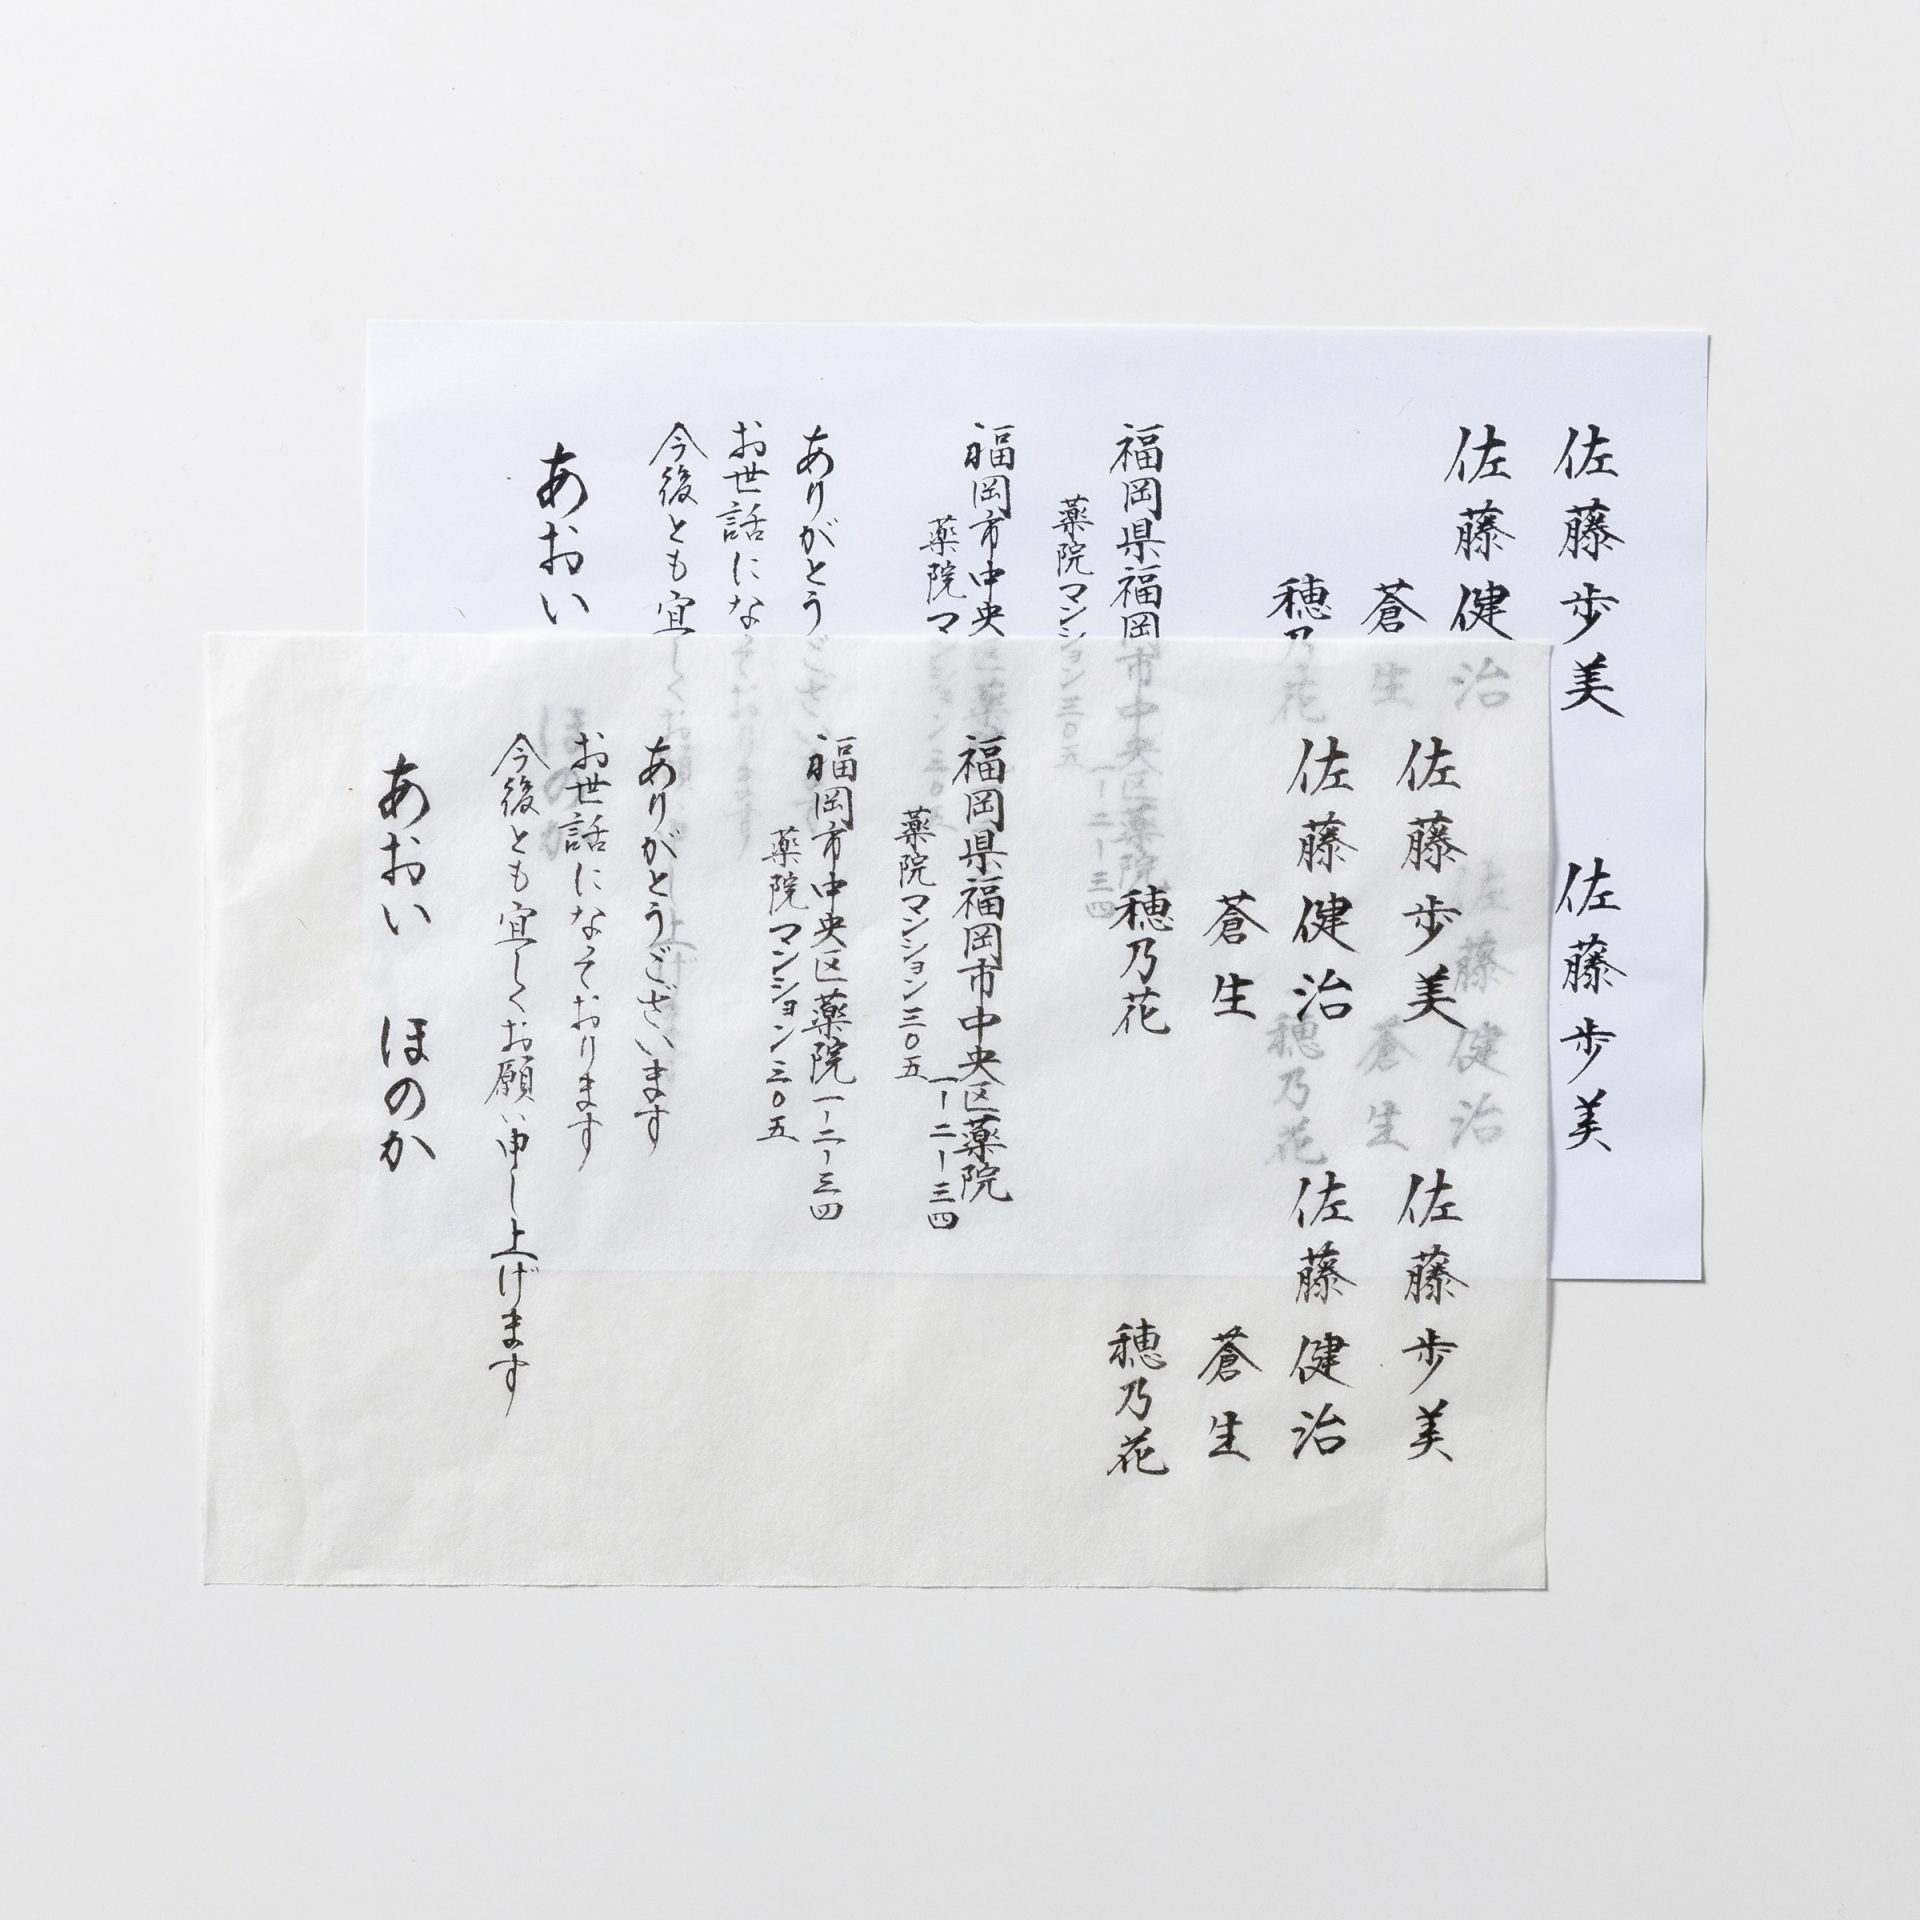 佐藤歩美　佐藤歩美
佐藤健治　佐藤健治
蒼生　蒼生
穂乃花　穂乃花
福岡県福岡市中央区薬院
一ー二ー三四
薬院マンション三〇五
福岡市中央区薬
薬院マンション三〇五
ありがとうござい
お世話になっております
今後とも宜しくお願い申し上げ
あおい　ほのか
佐藤歩美　佐藤歩美
佐藤健治　佐藤健治
蒼生　蒼生
穂乃花　穂乃花
福岡県福岡市中央区薬院
一ー二ー三四
薬院マンション三〇五
福岡市中央区薬院一ー二ー三四
薬院マンション三〇五
ありがとうございます
お世話になっております
今後とも宜しくお願い申し上げます
あおい　ほのか